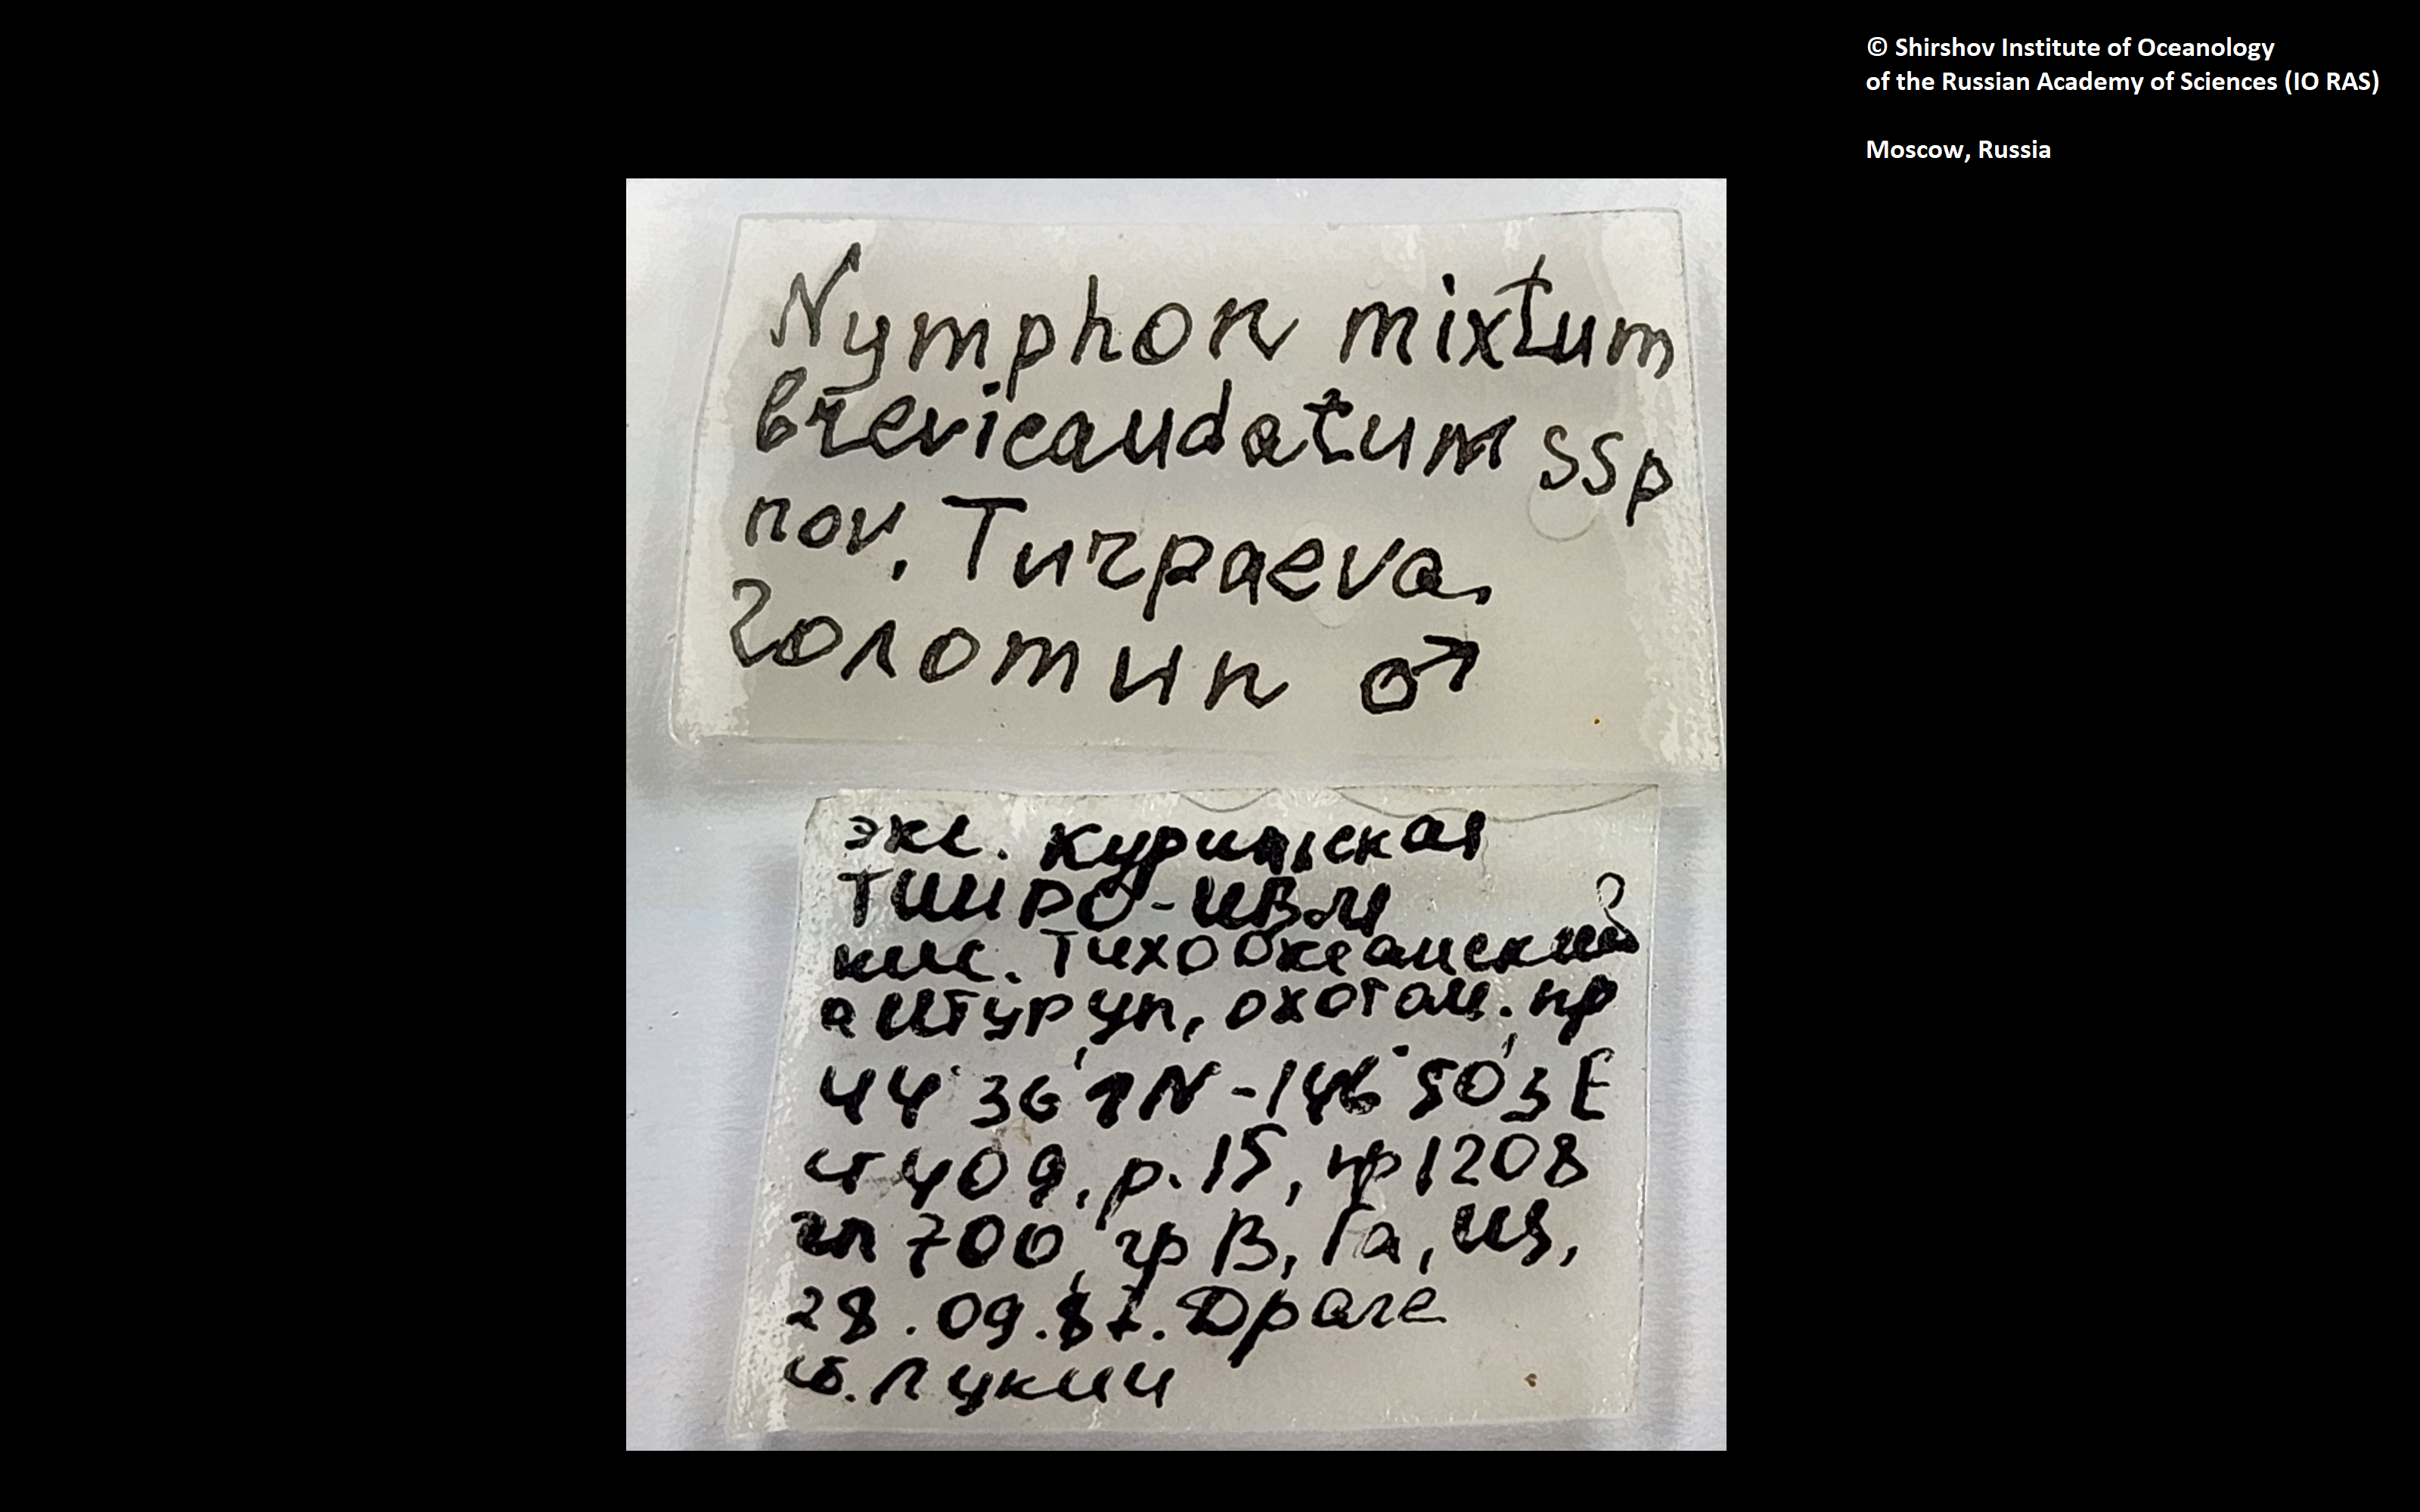 © Shirshov Institute of Oceanology
of the Russian Academy of Sciences (IO RAS)
Moscow, Russia
Nymphon mixtum
brevicaudatum ssp
nov. Turpaeva,
голотип ♂
экс. Курильская
ТИНРО-ИБМ
нис. Тихоокеанский
о Итуруп, охотом. пр
44°36'1N-146°50'3E
ст 409, р. 15, пр 1208
гл 700, гр В, Га,
28.09.87. Драге
сб. Лукин